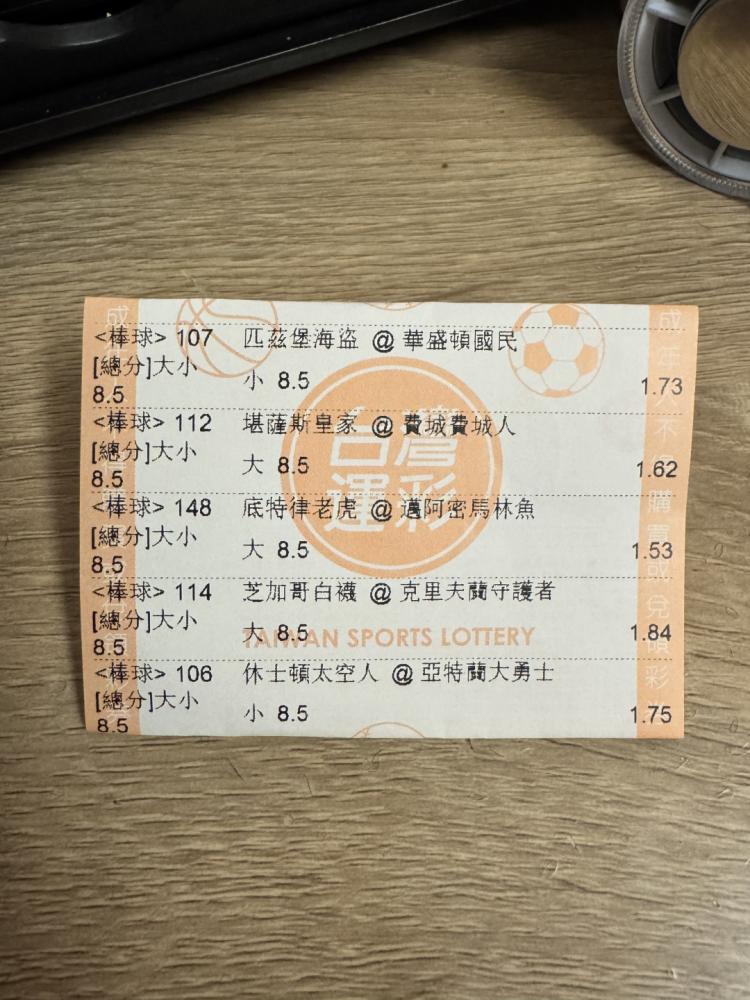 <棒球> 107 匹茲堡海盜 @ 華盛頓國民
[總分]大小 小 8.5 1.73
8.5
<棒球> 112 堪薩斯皇家 @ 費城費城人
[總分]大小 大 8.5 1.62
8.5
<棒球> 148 底特律老虎 @ 邁阿密馬林魚
[總分]大小 大 8.5 1.53
8.5
<棒球> 114 芝加哥白襪 @ 克里夫蘭守護者
[總分]大小 大 8.5 1.84
8.5
<棒球> 106 休士頓太空人 @ 亞特蘭大勇士
[總分]大小 小 8.5 1.75
8.5
台灣
運彩
TAIWAN SPORTS LOTTERY